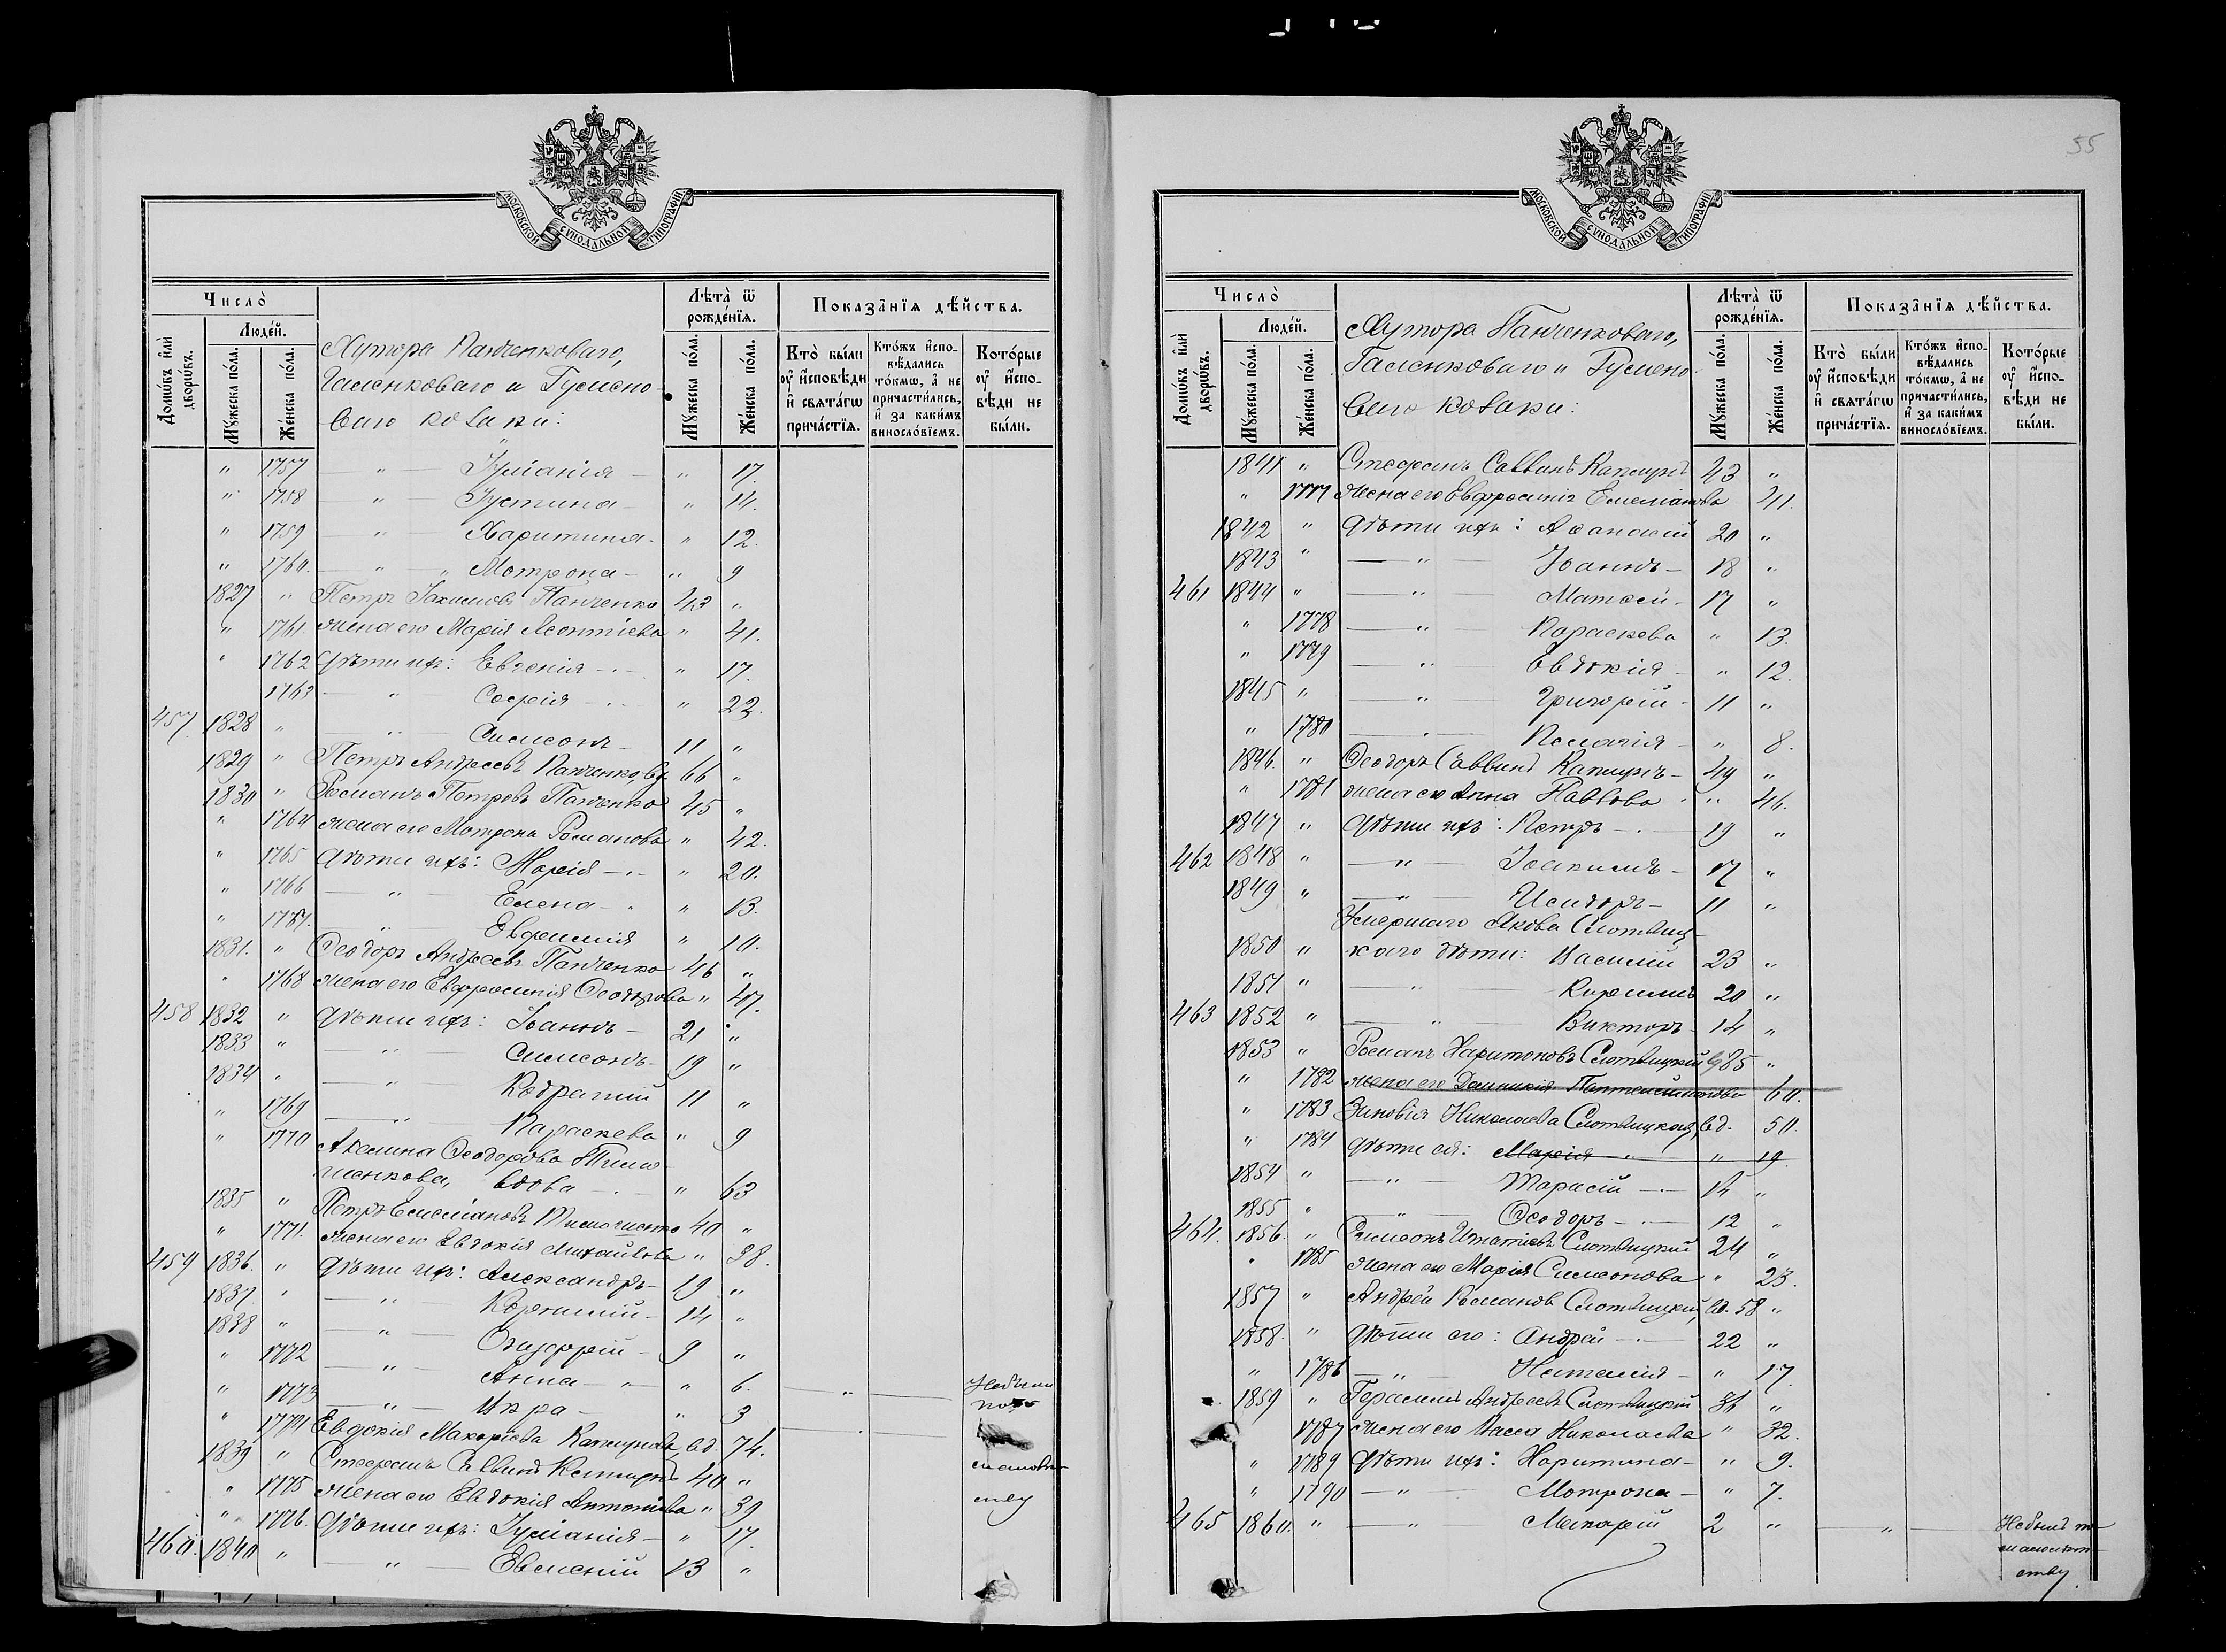 55
МОСКОВСКОЙ СѴНОДАЛЬНОЙ ТИПОГРАФІИ
Число̀
Люде́й.
Домѡ́въ и҆лѝ дворѡ́въ.
Мꙋ́жеска по́ла.
Же́нска по́ла.
Хутора Панченковаго,
Галенковаго и Гусено-
ваго козаки:
Лѣ́та ѿ рожде́нїѧ.
Мꙋ́жеска по́ла.
Же́нска по́ла.
Показа̑нїѧ дѣ́йства.
Кто̀ бы́ли оу҆ и҆сповѣ́ди и҆ свѧта́гѡ прича́стїѧ.
Кто́жъ и҆сповѣ́дались то́кмѡ, а҆ не причасти́лись, и҆ за каки́мъ винослѡ́вїемъ.
Кото́рые оу҆ и҆сповѣ́ди не бы́ли.
" 1757 — " — Іуліанія — " 17.
" 1758 — " — Іустина — " 14.
" 1759 — " — Харитина — " 12.
" 1760. — " — Мотрона — " 9
1827 " Петръ Іакимовъ Панченко 43 "
" 1761. жена его Марія Леонтіева " 41.
" 1762 дѣти ихъ: Евгенія — " 17.
1763 — " — Софія — " 22.
457. 1828 " — " — Симеонъ — 11 "
1829 " Петръ Андреевъ Панченко, вд. 66 "
1830 " Романъ Петровъ Панченко 45 "
" 1764 жена его Мотрона Романова " 42.
" 1765 дѣти ихъ: Марія — " 20.
" 1766 — " — Елена — " 13.
" 1767. — " — Евфимія " 10.
1831. " Ѳеодоръ Андреевъ Панченко 46 "
" 1768 жена его Евфросинія Ѳеодорова " 47.
458 1832 " дѣти ихъ: Іоаннъ — 21 "
1833 " — " — Симеонъ — 19 "
1834 " — " — Кодратій 11 "
" 1769 — " — Параскева " 9
" 1770 Акилина Ѳеодорова Тимо-
шенкова, вдова — " 63
1835 " Петръ Емеліановъ Тимошенко 40 "
" 1771. жена его Евдокія Михайлова " 38.
459 1836. " дѣти ихъ: Александръ — 19 "
1837. " — " — 14 "
1838 " — " — Онуфрій — 9 "
" 1772 — " — Анна — " 6.
" 1773 — " — Кира — " 3 — " — Небыли по
" 1774 Евдокія Макаріева вд. 74.
1839 " Стефанъ Саввинъ 40 " малолѣт-
" 1775 жена его Евдокія Антоніева " 39 ству
" 1776. дѣти ихъ: Іуліанія — " 17.
460. 1840 " — " — Евмений 13 "
МОСКОВСКОЙ СѴНОДАЛЬНОЙ ТИПОГРАФІИ
Число̀
Люде́й.
Домѡ́въ и҆лѝ дворѡ́въ.
Мꙋ́жеска по́ла.
Же́нска по́ла.
Хутора Панченковаго,
Галенковаго и Гусено-
ваго козаки:
Лѣ́та ѿ рожде́нїѧ.
Мꙋ́жеска по́ла.
Же́нска по́ла.
Показа̑нїѧ дѣ́йства.
Кто̀ бы́ли оу҆ и҆сповѣ́ди и҆ свѧта́гѡ прича́стїѧ.
Кто́жъ и҆сповѣ́дались то́кмѡ, а҆ не причасти́лись, и҆ за каки́мъ винослѡ́вїемъ.
Кото́рые оу҆ и҆сповѣ́ди не бы́ли.
1841 " Стефанъ Саввинъ 43 "
" 1777 жена его Евфросинія Емеліанова 41.
1842 " дѣти ихъ: Аѳанасій 20 "
1843 " — " — Іоаннъ — 18 "
461 1844 " — " — Матѳей — 17 "
" 1778 — " — Параскева " 13.
" 1779 — " — Евдокія — " 12.
1845 " — " — Григорій — 11 "
" 1780 — " — Пелагія — " 8.
1846. " Ѳеодоръ Саввинъ 49 "
" 1781 жена его Анна Павлова " 46.
1847 " дѣти ихъ: Петръ — 19 "
462 1848 " — " — Іоакимъ — 17 "
1849 " — " — Исидоръ — 11 "
Умершаго Якова Слотвиц-
1850 " каго дѣти: Василій 23 "
1851 " — " — Кириллъ 20 "
463 1852 " — " — Викторъ — 14 "
1853 " Романъ Харитоновъ Слотвицкій вд. 85 "
" 1782 жена его 60.
" 1783 Зиновія Николаева Слотвицкая, вд. 50.
" 1784 дѣти ея: Марія " 19
1854 " — " — Тарасій — 14 "
1855 " — " — Ѳеодоръ — 12 "
464. 1856. " Симеонъ Игнатіевъ Слотвицкій 24 "
" 1785 жена его Марія Симеонова " 23.
1857 " Андрей Романовъ Слотвицкій, вд. 58 "
1858. " дѣти его: Андрей — 22 "
" 1786 — " — Наталія — " 17.
1859 " Герасимъ Андреевъ Слотвицкій "
1787 жена его Васса Николаева " 32.
" 1789 дѣти ихъ: Харитина — " 9.
" 1790 — " — Мотрона — " 7.
465 1860. " — " — Макарій 2 " — " — Небылъ по
малолѣт-
ству.